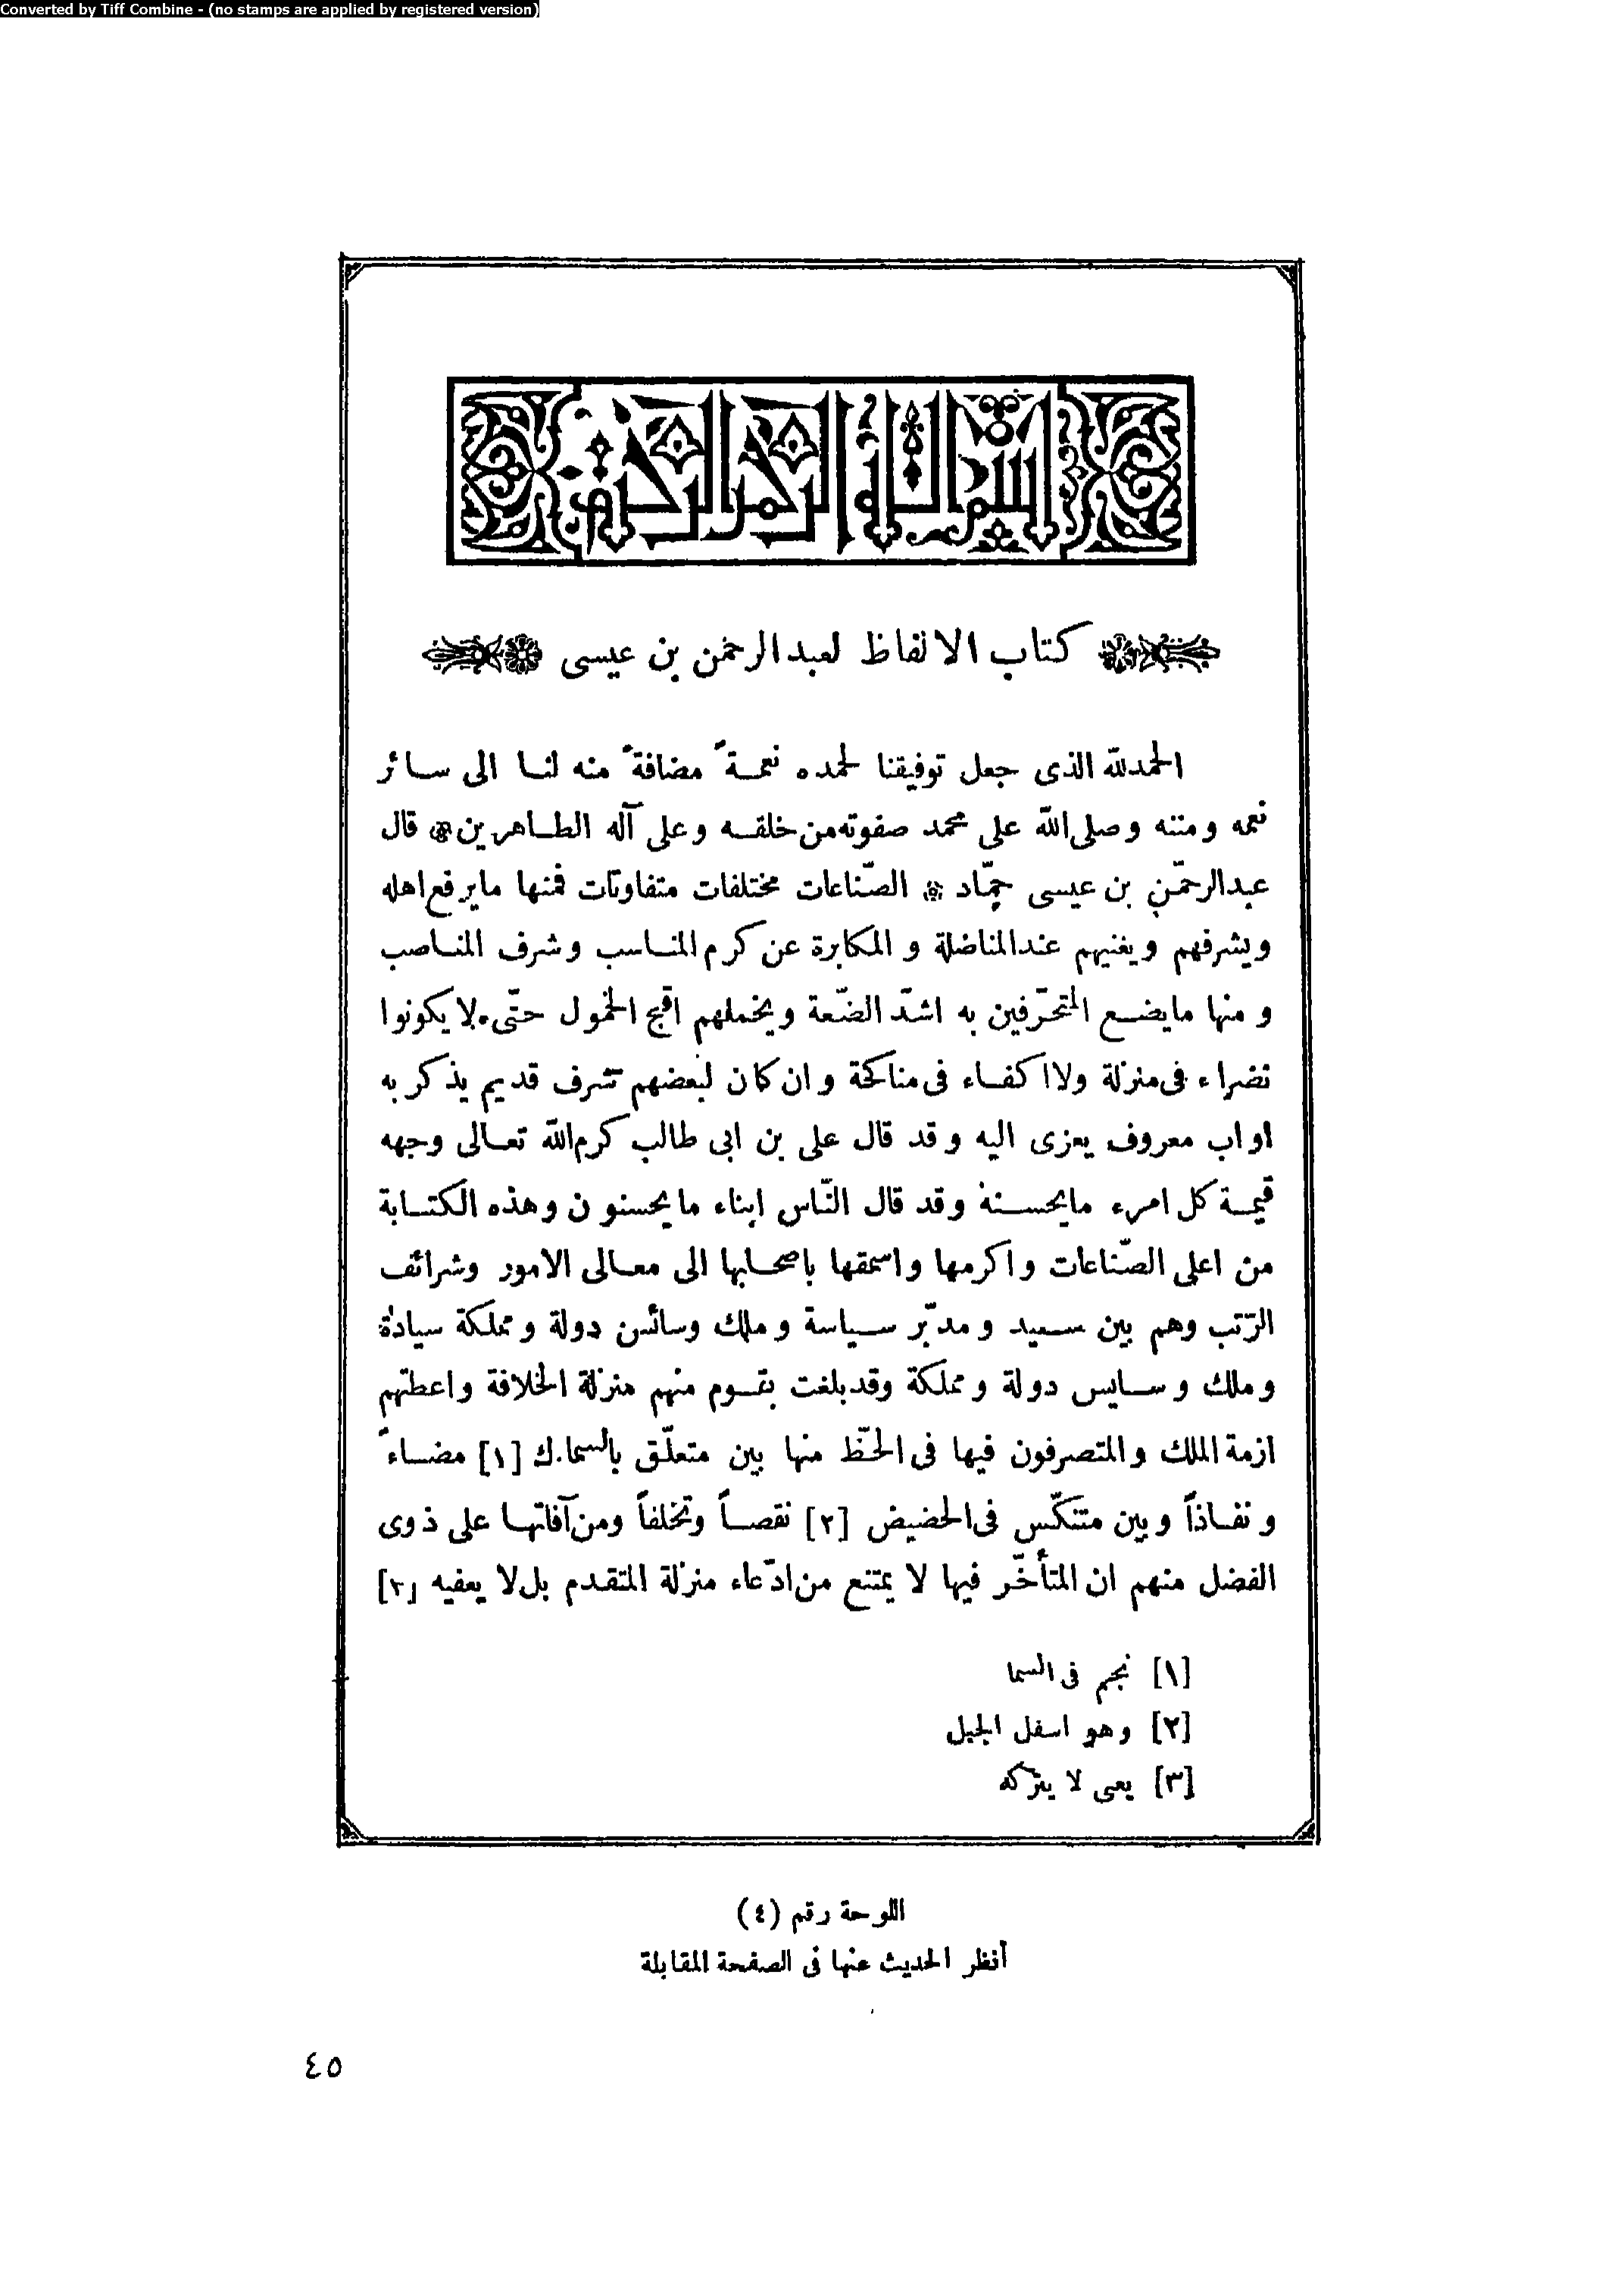 Converted by Tiff Combine - (no stamps are applied by registered version)
بسم الله الرحمن الرحيم
كتاب الالفاظ لعبدالرحمن بن عيسى
الحمدلله الذى جعل توفيقنا لحمده نعمـة ً مضافة ً منه لنـا الى سـائر
نعمه ومننه وصلى الله على محمد صفوته من خلقـه وعلى آله الطـاهرين قال
عبدالرحمٓن بن عيسى حمّاد الصّناعات مختلفات متفاوتات فمنها مايرفع اهله
ويشرفهم ويغنيهم عندالمناضلة و المكابرة عن كرم المنـاسب وشرف المنـاصب
و منها مايضـع المتحرّفين به اشدّ الضّعة ويخملهم اقبح الخمول حتّى لا يكونوا
نضراء فى منزلة ولا اكفـاء فى مناكحة وان كان لبعضهم شرف قديم يذكر به
او اب معروف يعزى اليه وقد قال على بن ابى طالب كرم الله تعـالى وجهه
قيمـة كل امرء مايحسـنه وقد قال النّاس ابناء مايحسنون وهذه الكتـابة
من اعلى الصّناعات واكرمها واسمقها باصحـابها الى معـالى الامور وشرائف
الرّتب وهم بين سـعيد ومدبّر سـياسة وملك وسائس دولة ومملكة سيادة
وملك وسـايس دولة ومملكة وقدبلغت بقـوم منهم منزلة الخلافة واعطتهم
ازمة الملك والمتصرفون فيها فى الحظّ منها بين متعلّق بالسماك [١] مضـاءً
ونفـاذاً وبين متنكّس فى الحضيض [٢] نقصـاً وتخلفاً ومن آفاتهـا على ذوى
الفضل منهم ان المتأخّر فيها لا يمتنع من ادّعاء منزلة المتقدم بل لا يعفيه [٣]
[١] نجم فى السما
[٢] وهو اسفل الجبل
[٣] يعى لا يتركه
اللوحة رقم (٤)
أنظر الحديث عنها فى الصفحة المقابلة
٤٥